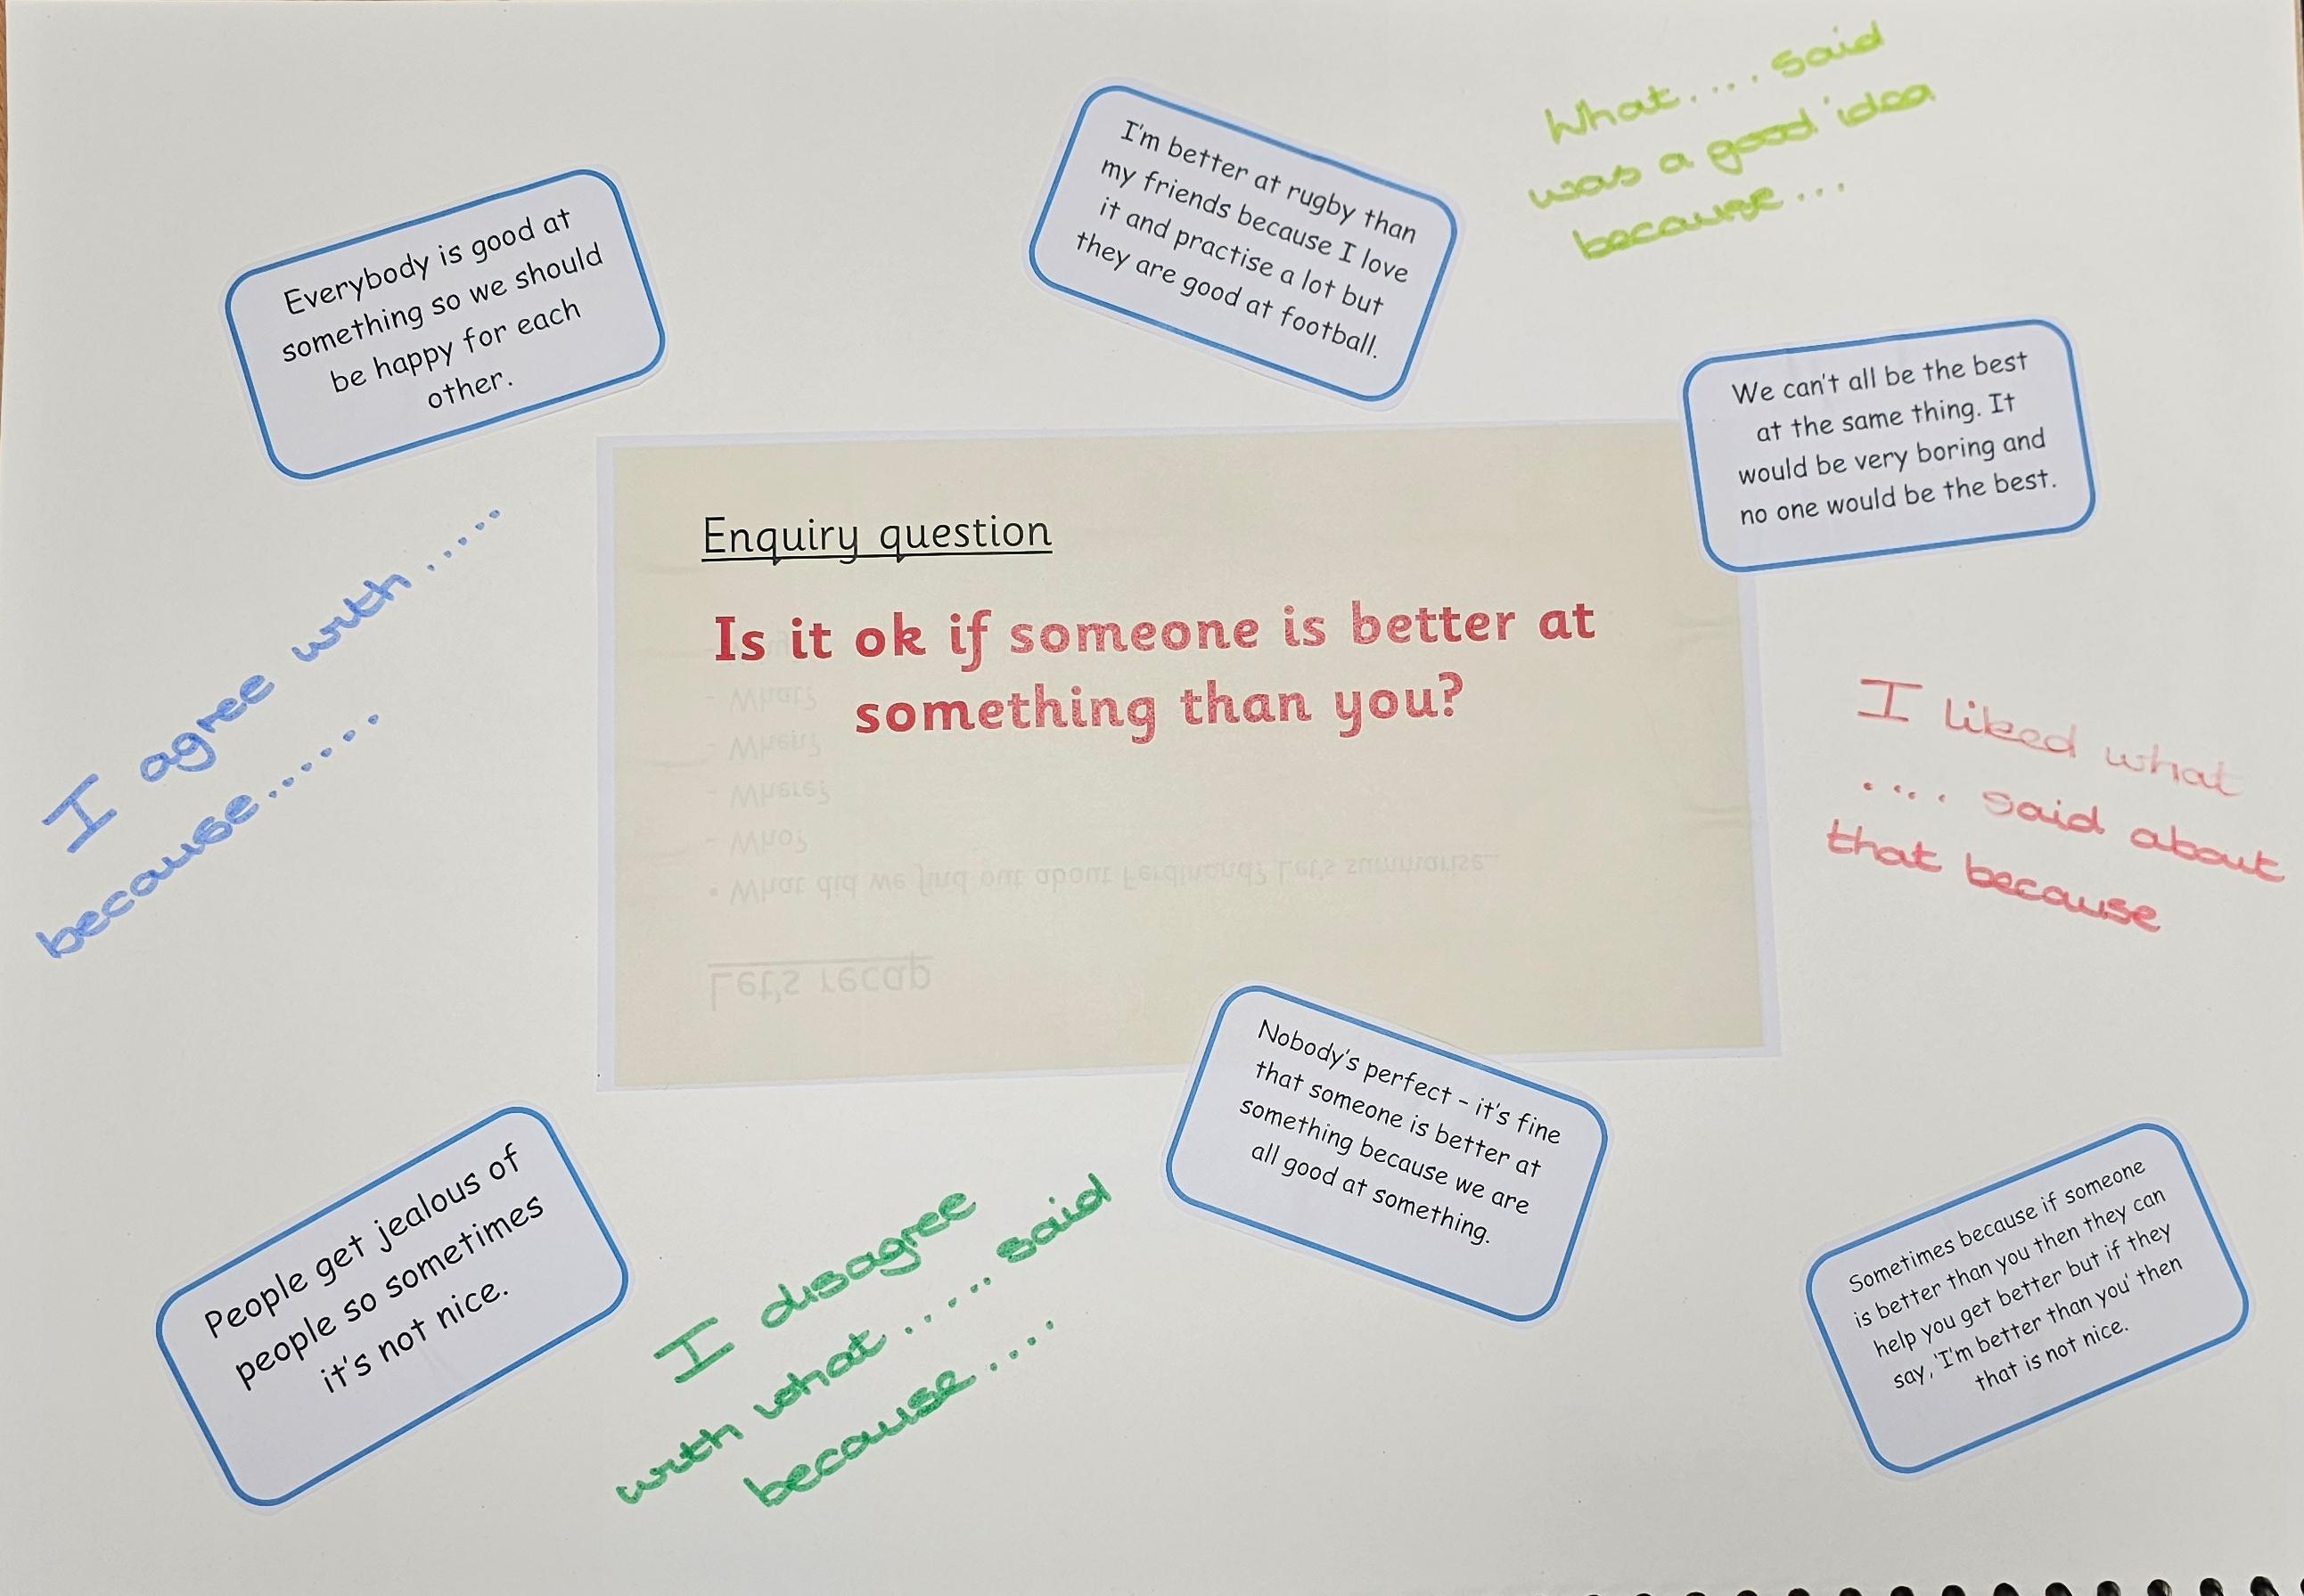 What.... said
was a good idea
because...
I'm better at rugby than
my friends because I love
it and practise a lot but
they are good at football.
Everybody is good at
something so we should
be happy for each
other.
We can't all be the best
at the same thing. It
would be very boring and
no one would be the best.
Enquiry question
Is it ok if someone is better at
something than you?
I agree with.....
because......
I liked what
.... said about
that because
- What?
- When?
- Where?
- Who?
• What did we find out about Ferdinand? Let's summarise
Let's recap
Nobody's perfect – it's fine
that someone is better at
something because we are
all good at something.
People get jealous of
people so sometimes
it's not nice.
I disagree
with what.....said
because....
Sometimes because if someone
is better than you then they can
help you get better but if they
say, 'I'm better than you' then
that is not nice.